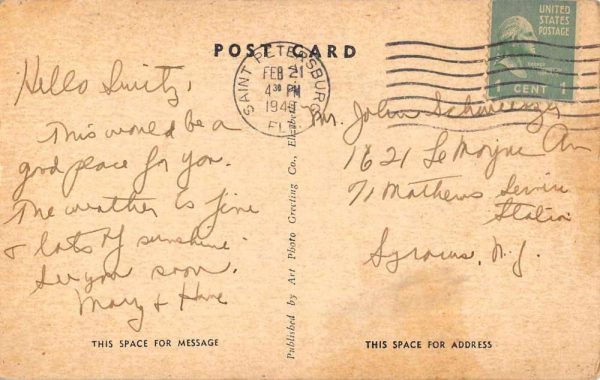 POST CARD
UNITED
STATES
POSTAGE
1 CENT 1
SAINT PETERSBURG
FEB 21
4 30 PM
FLA
Hello
This would be a
good place for you.
The weather is fine
& lots of sunshine.
See you soon.
Mary &
Mr. John
1621 LeMoyne Av
% Mathews Service
Station
Syracuse, N.Y.
Published by Art Photo Greeting Co., Elizabeth,
THIS SPACE FOR MESSAGE
THIS SPACE FOR ADDRESS